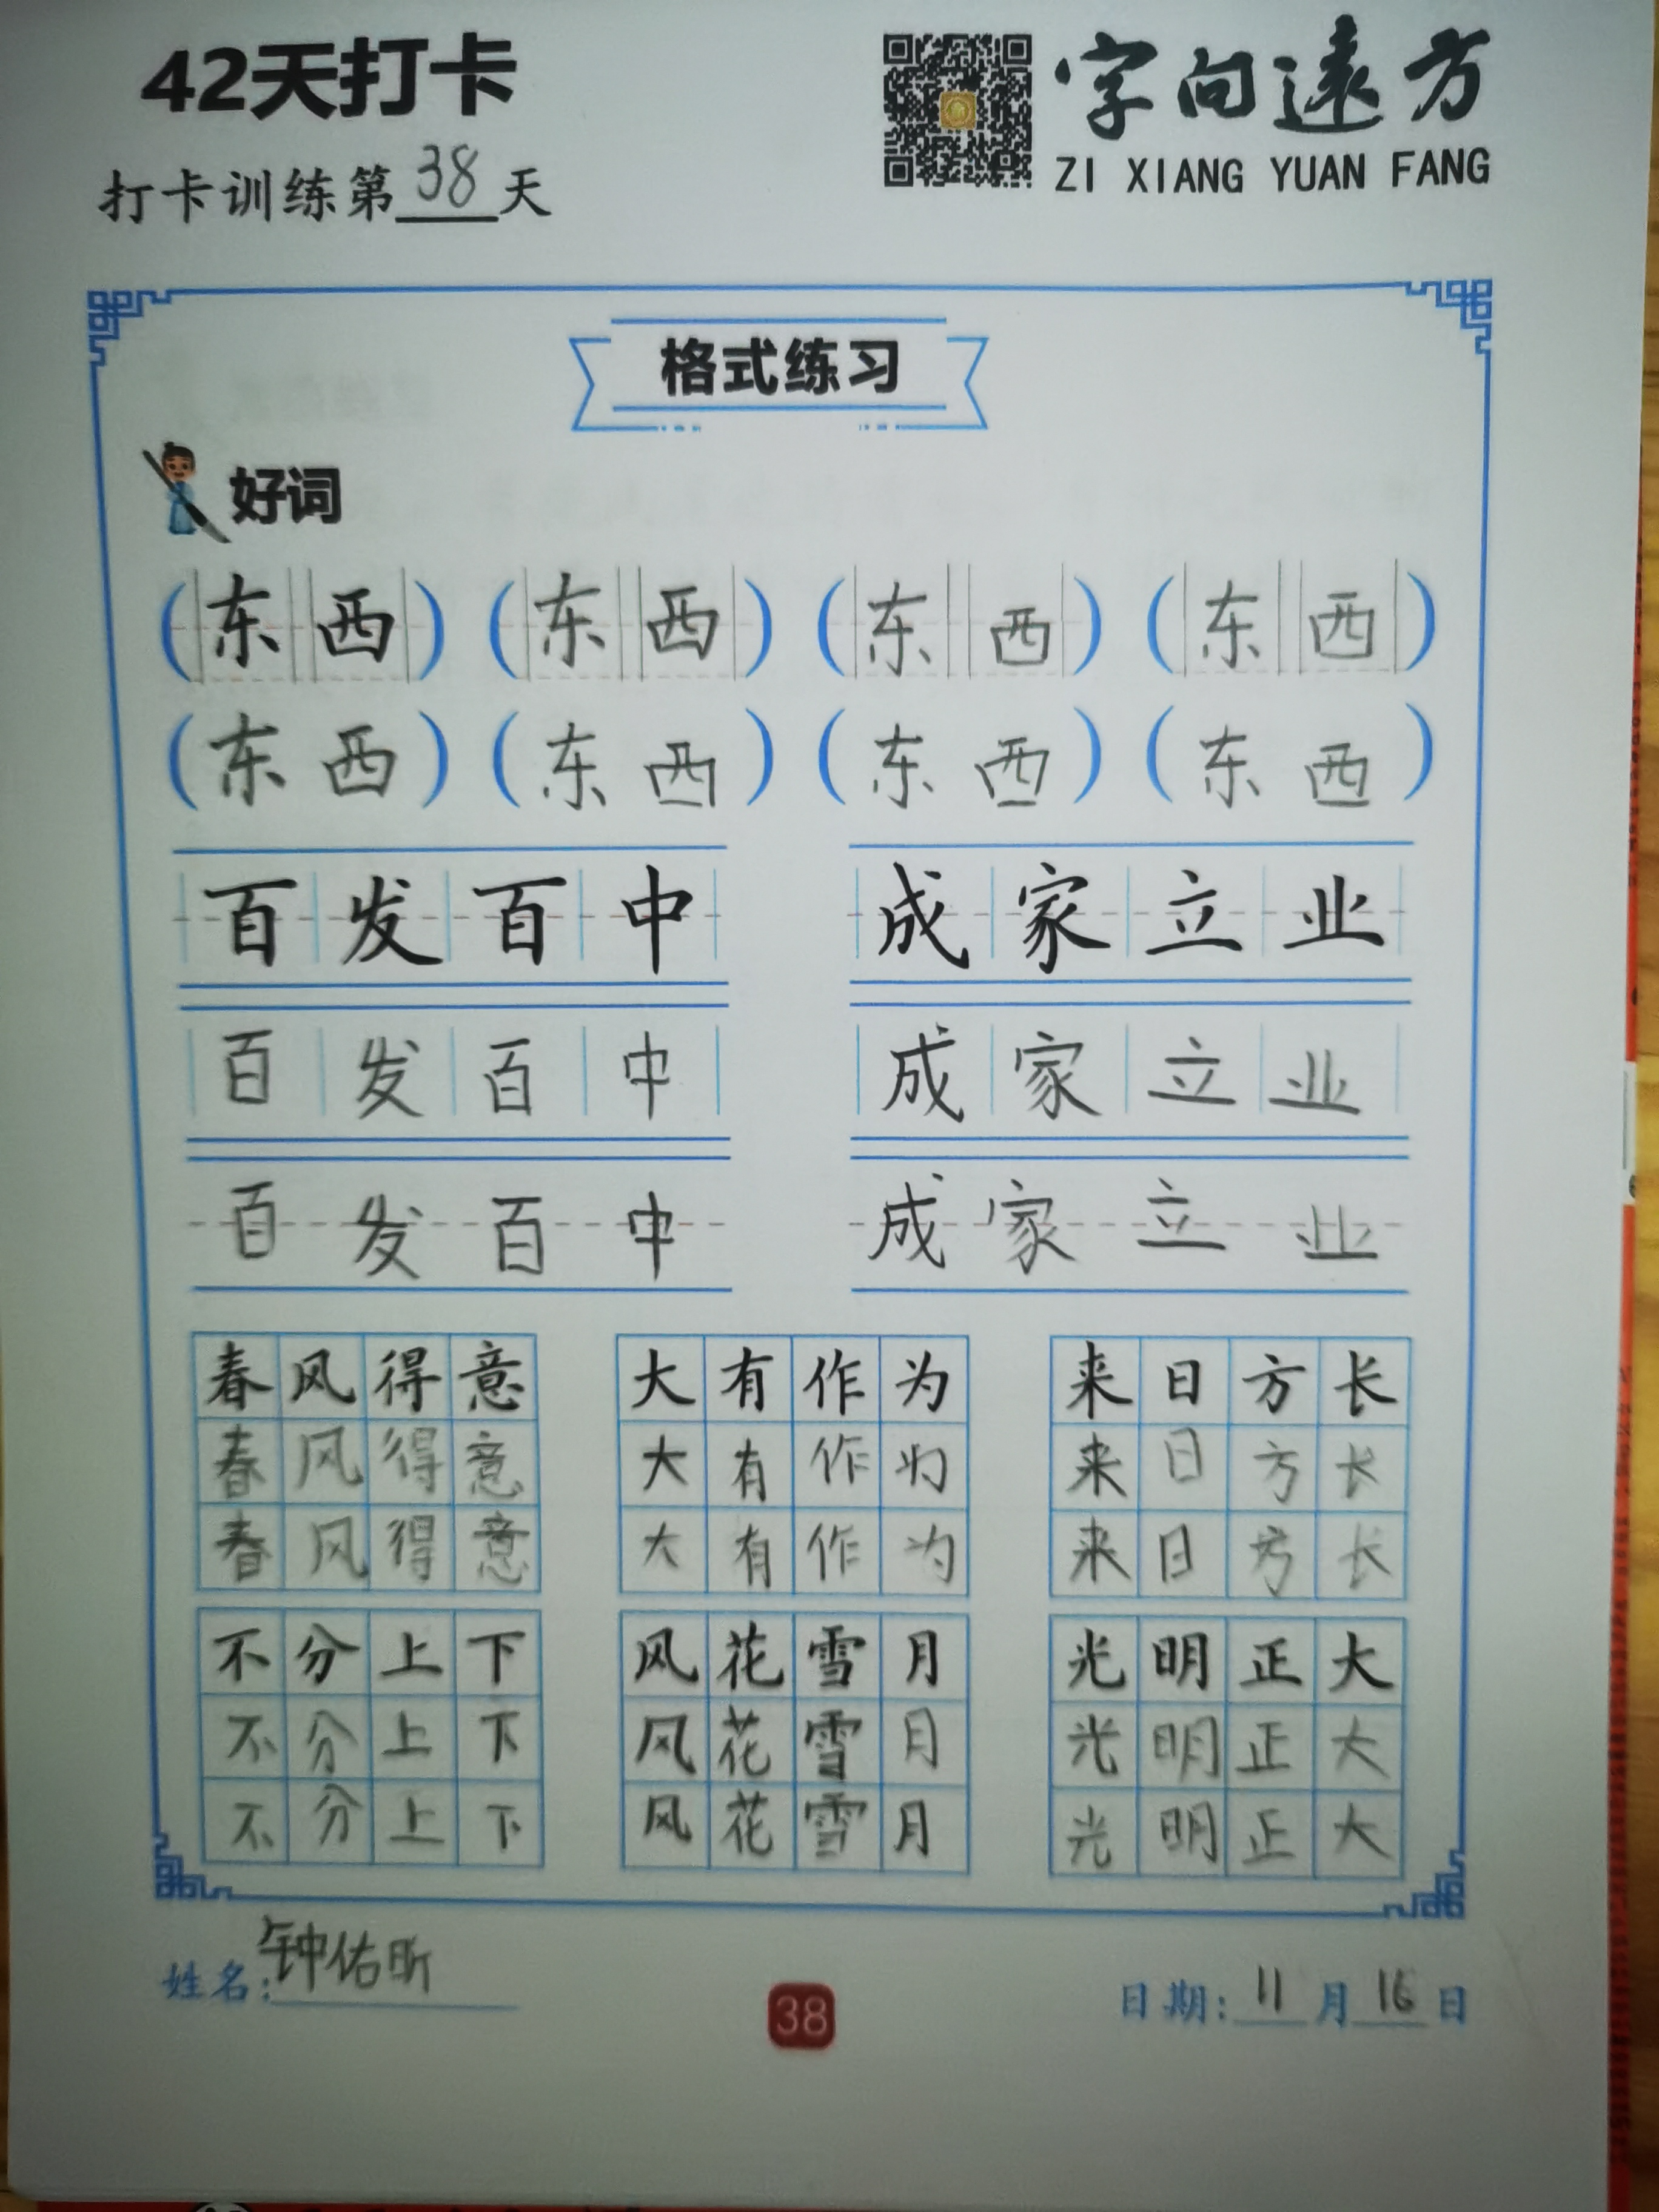 42天打卡
字向遠方
ZI XIANG YUAN FANG
打卡训练第38天
格式练习
好词
(东西) (东西) (东西) (东西)
(东西) (东西) (东西) (东西)
百发百中 成家立业
百发百中 成家立业
百发百中 成家立业
春风得意 大有作为 来日方长
春风得意 大有作为 来日方长
春风得意 大有作为 来日方长
不分上下 风花雪月 光明正大
不分上下 风花雪月 光明正大
不分上下 风花雪月 光明正大
姓名:钟佑昕
38
日期:11月16日